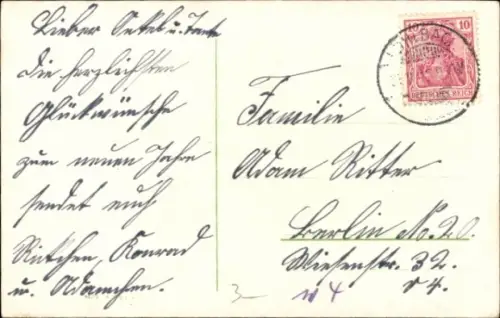 Lieber Onkel u. Tante
Die herzlichsten
Glückwünsche
zum neuen Jahre
sendet euch
Konrad
u. Adamchen.
10
DEUTSCHES REICH
Familie
Adam Ritter
Berlin N. 20.
Wiesenstr. 32.
v 4.
3
4